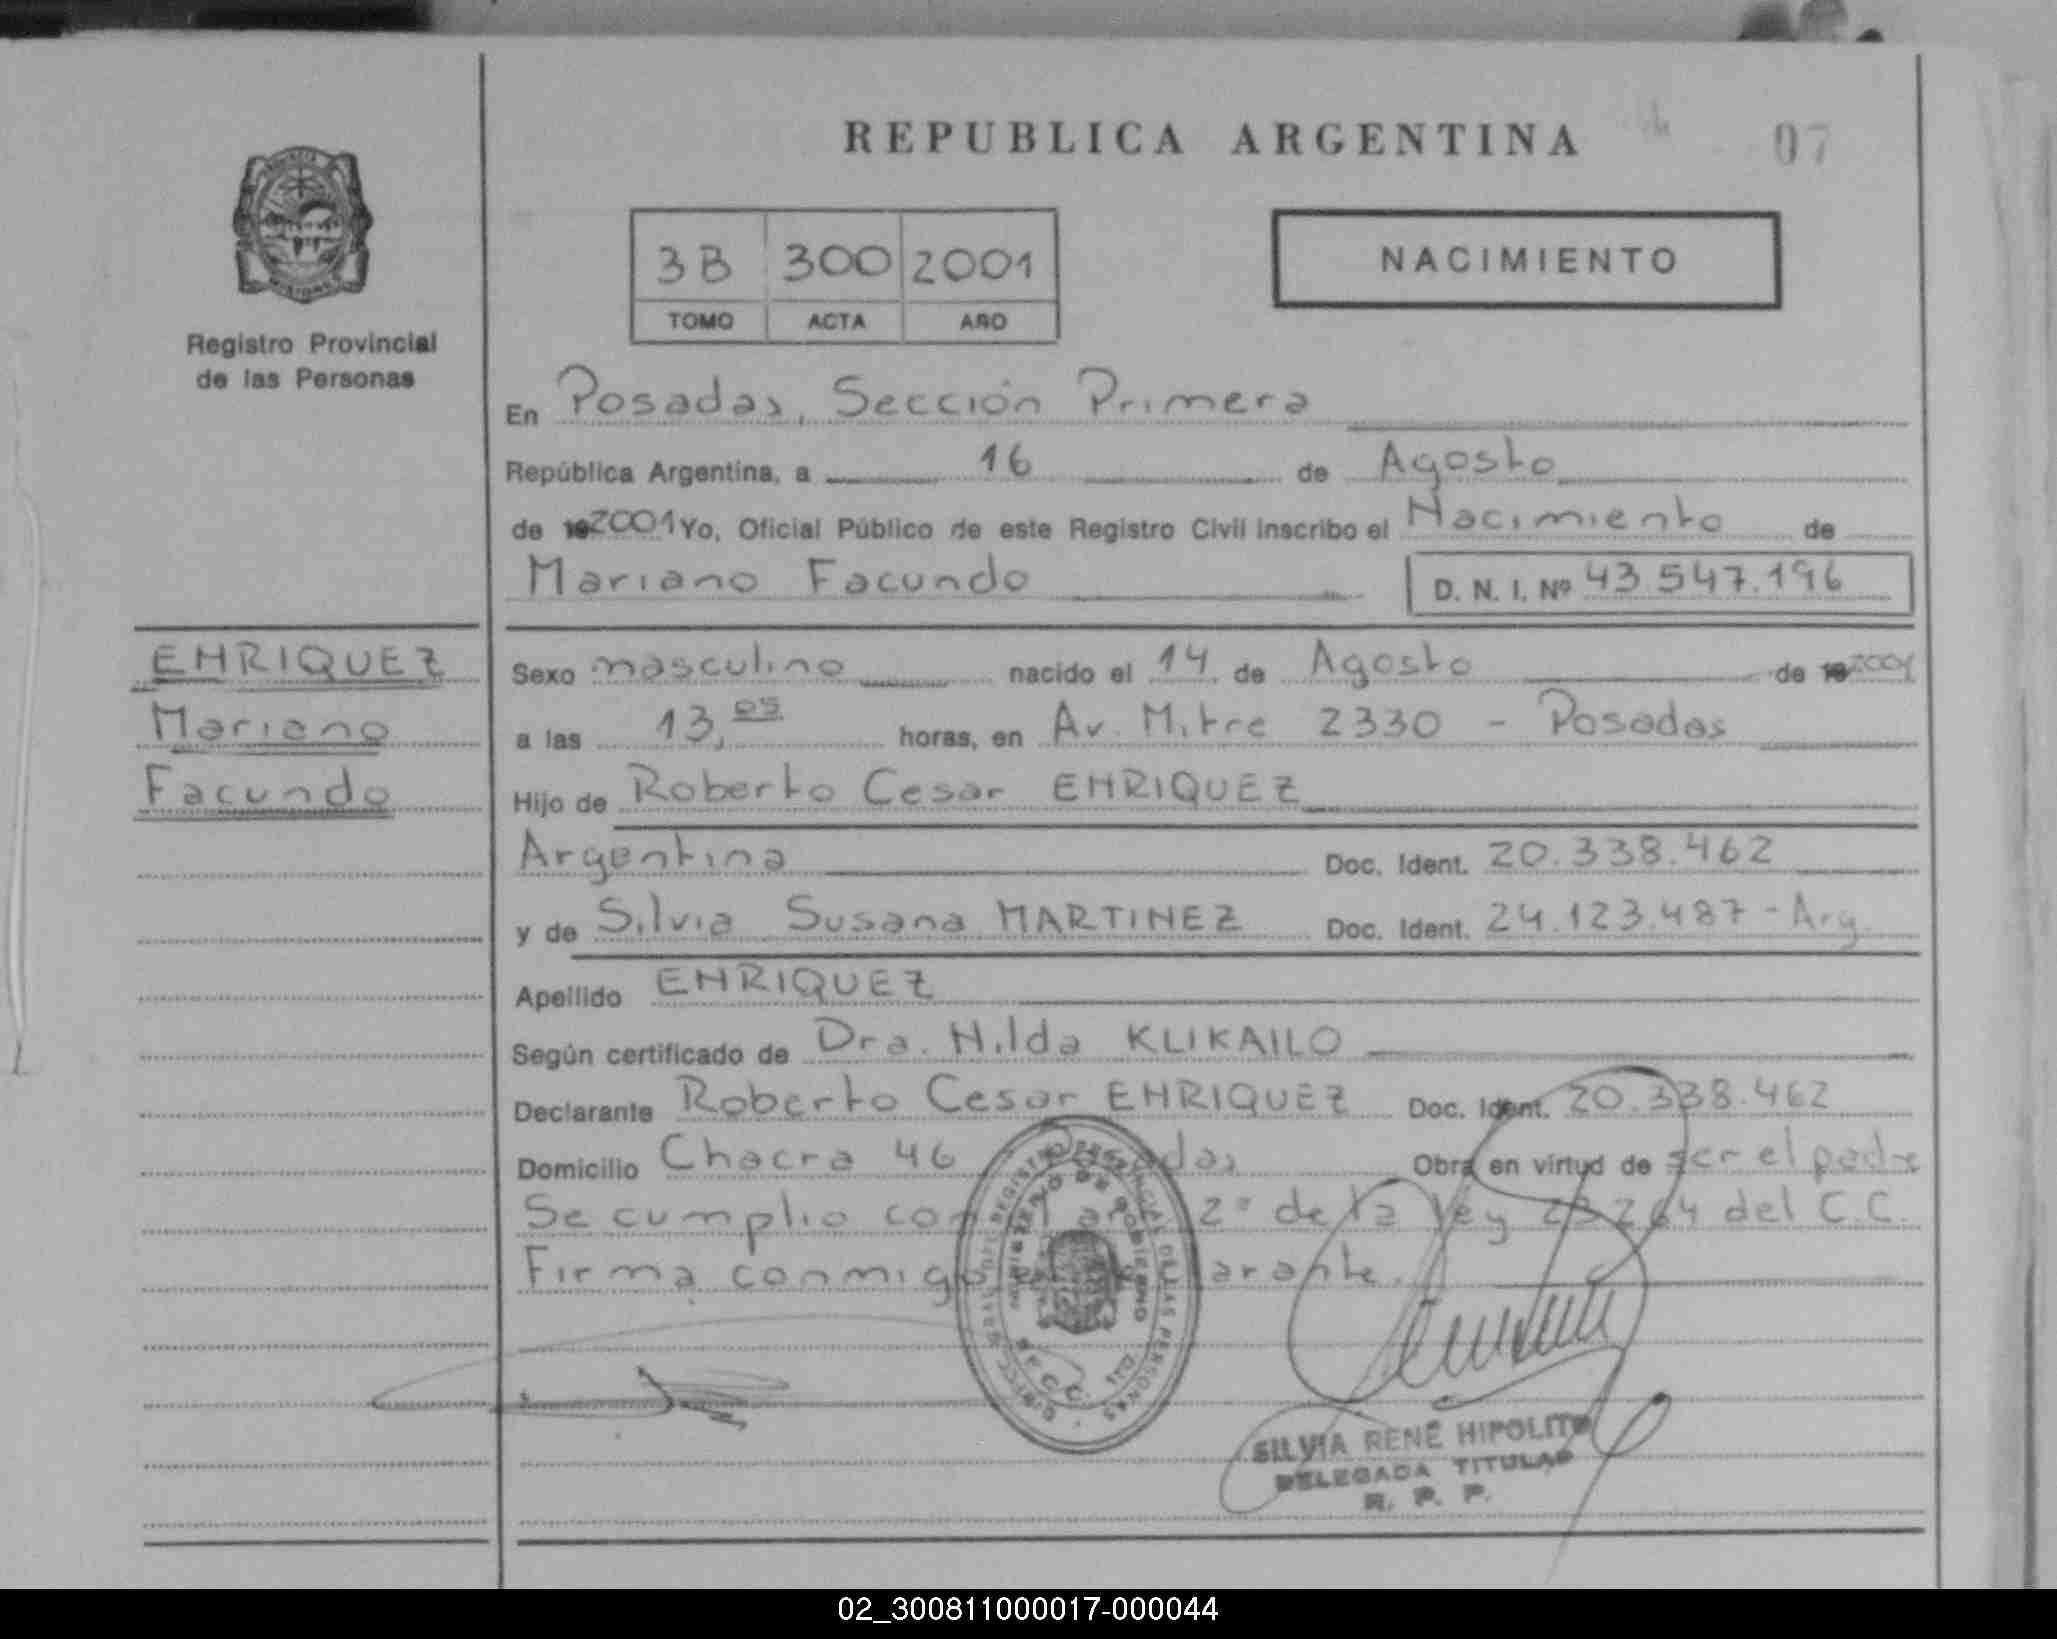 REPUBLICA ARGENTINA
07
3B 300 2001
TOMO ACTA AÑO
NACIMIENTO
Registro Provincial
de las Personas
En Posadas, Sección Primera
República Argentina, a 16 de Agosto
de 19 2001 Yo, Oficial Público de este Registro Civil inscribo el Nacimiento de
Mariano Facundo D. N. I. Nº 43.547.196
ENRIQUEZ
Mariano
Facundo
Sexo masculino nacido el 14 de Agosto de 19 2001
a las 13,05 horas, en Av. Mitre 2330 - Posadas
Hijo de Roberto Cesar ENRIQUEZ
Argentina Doc. Ident. 20.338.462
y de Silvia Susana MARTINEZ Doc. Ident. 24.123.487 - Arg.
Apellido ENRIQUEZ
Según certificado de Dra. Hilda KLIKAILO
Declarante Roberto Cesar ENRIQUEZ Doc. Ident. 20.338.462
Domicilio Chacra 46 Obra en virtud de ser el padre
Se cumplio con 2º de la ley 23264 del C.C.
Firma conmigo
REGISTRO PROVINCIAL DE LAS PERSONAS
MINISTERIO DE GOBIERNO
SILVIA RENÉ HIPOLITO
DELEGADA TITULAR
R. P. P.
02_300811000017-000044